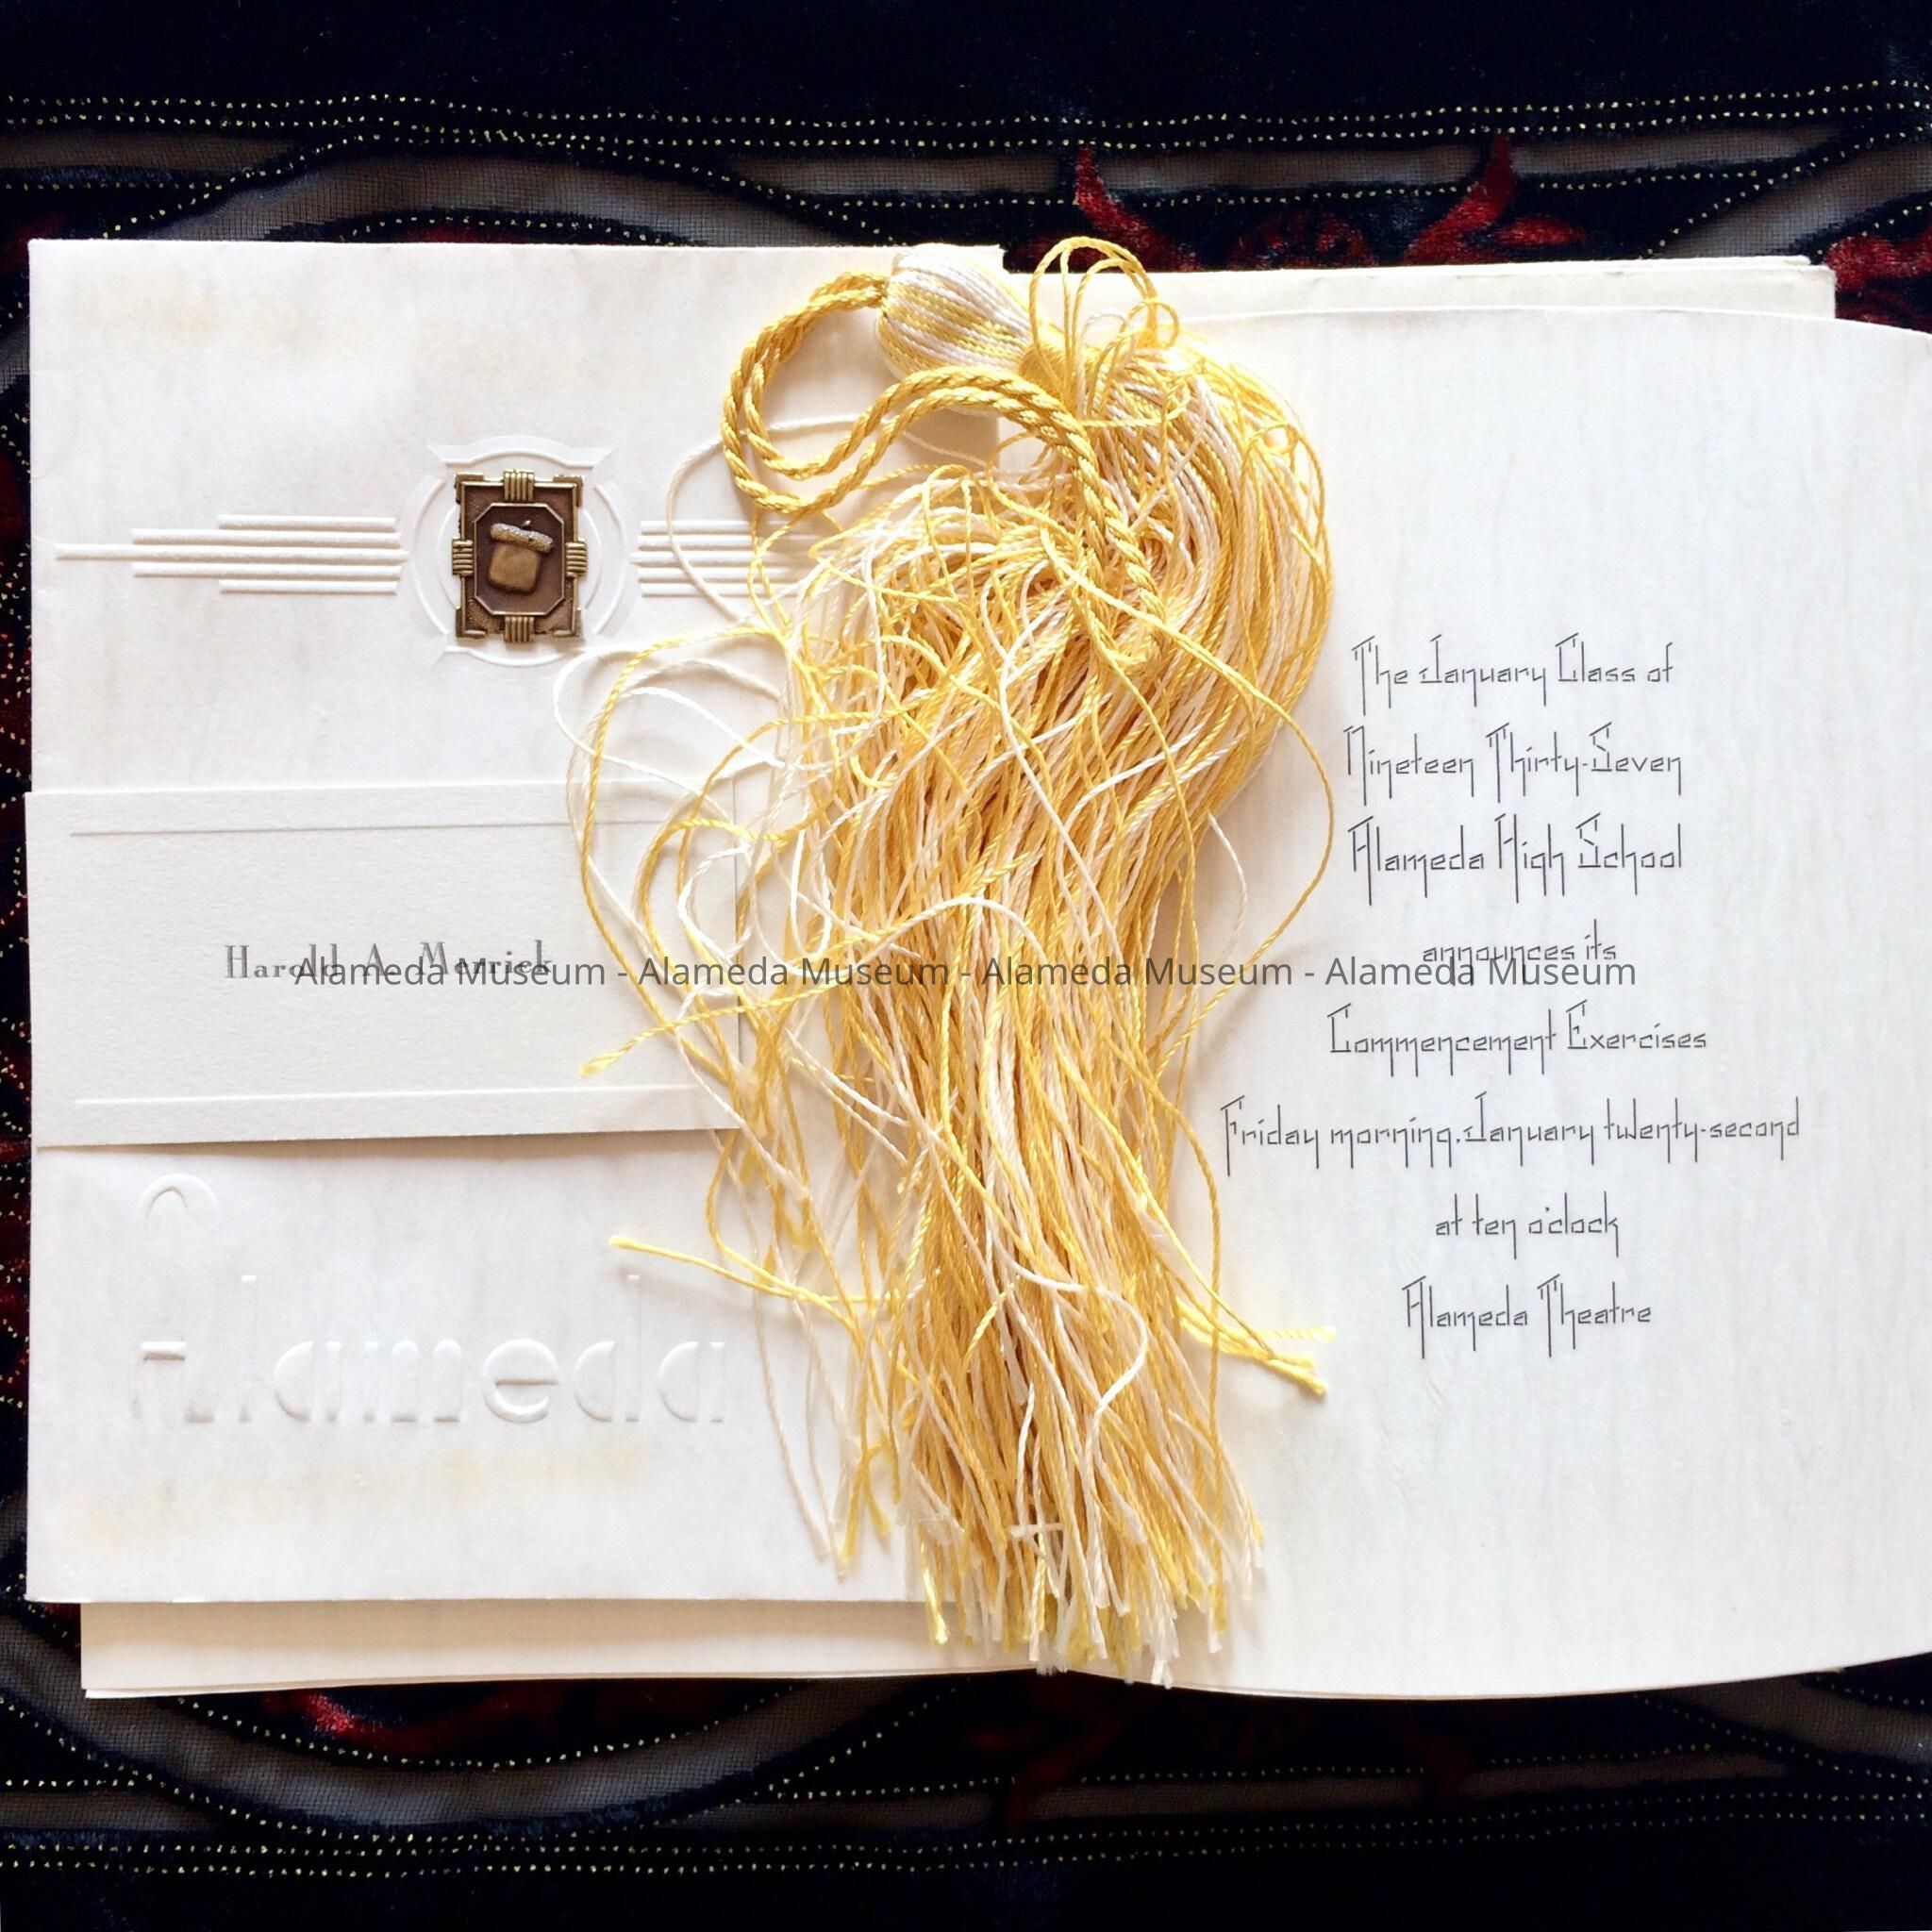 Harold A. Merrick
Alameda
The January Class of
Nineteen Thirty-Seven
Alameda High School
announces its
Commencement Exercises
Friday morning, January twenty-second
at ten o'clock
Alameda Theatre
Alameda Museum - Alameda Museum - Alameda Museum - Alameda Museum